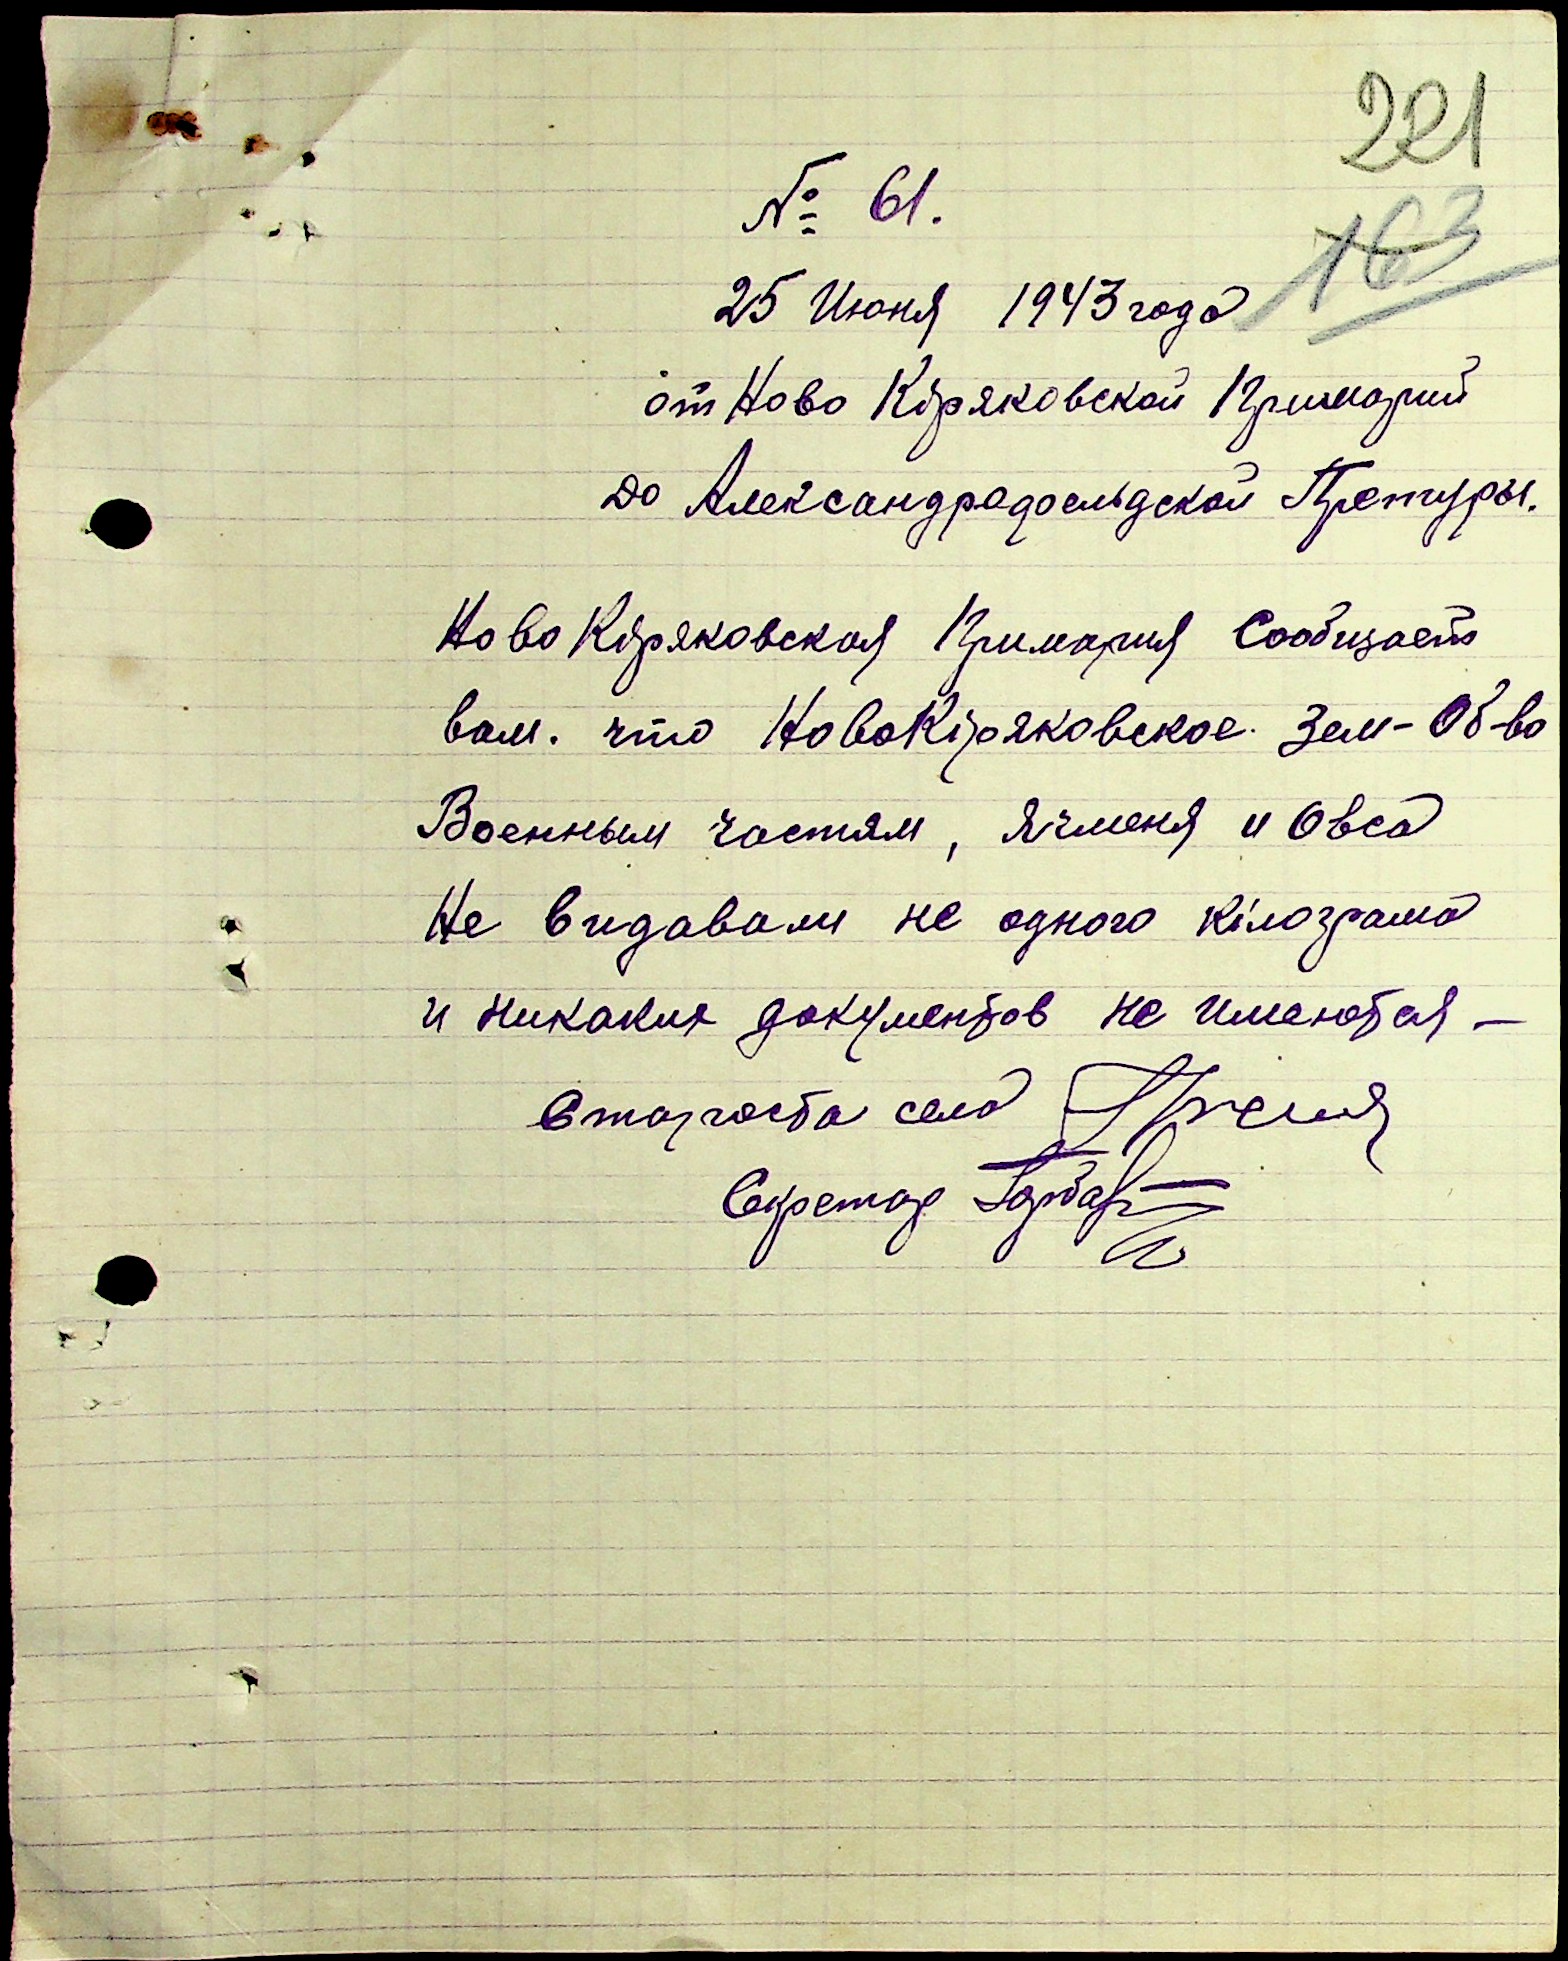 221
163
№ 61.
25 Июня 1943 года
от Ново Кіряковской Примарий
до Александрадоельдской Претуры.
Ново Кіряковская Примария Сообщает
вам. что НовоКіряковское. Зем-Об-во
Военным частям, Ячменя и Овса
Не видавали не одного кілограма
и никаких документов не имеются –
Староста села
Секретар Горбач